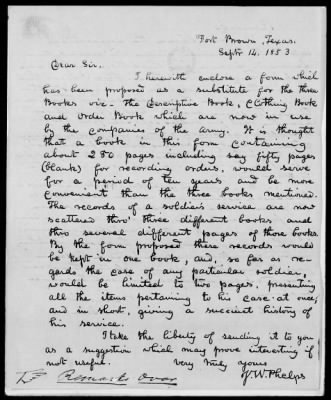 Fort Brown, Texas.
Septr 14. 1853
Dear Sir.
I herewith enclose a form which
has been proposed as a substitute for the three
Books viz. The Descriptive Book, Clothing Book
and Order Book which are now in use
by the companies of the army. It is thought
that a book in this form containing
about 280 pages including say fifty pages
(blank) for recording orders, would serve
for a period of ten years and be more
convenient than the three books mentioned.
The records of a soldier's service are now
scattered thro' three different books and
thro several different pages of those books.
By the form proposed these records would
be kept in one book, and, so far as re-
gards the case of any particular soldier,
would be limited to two pages, presenting
all the items pertaining to his case at once,
and in short, giving a succinct history of
his service.
I take the liberty of sending it to you
as a suggestion which may prove interesting if
not useful. Very truly yours
J. W. Phelps
Remarks Over